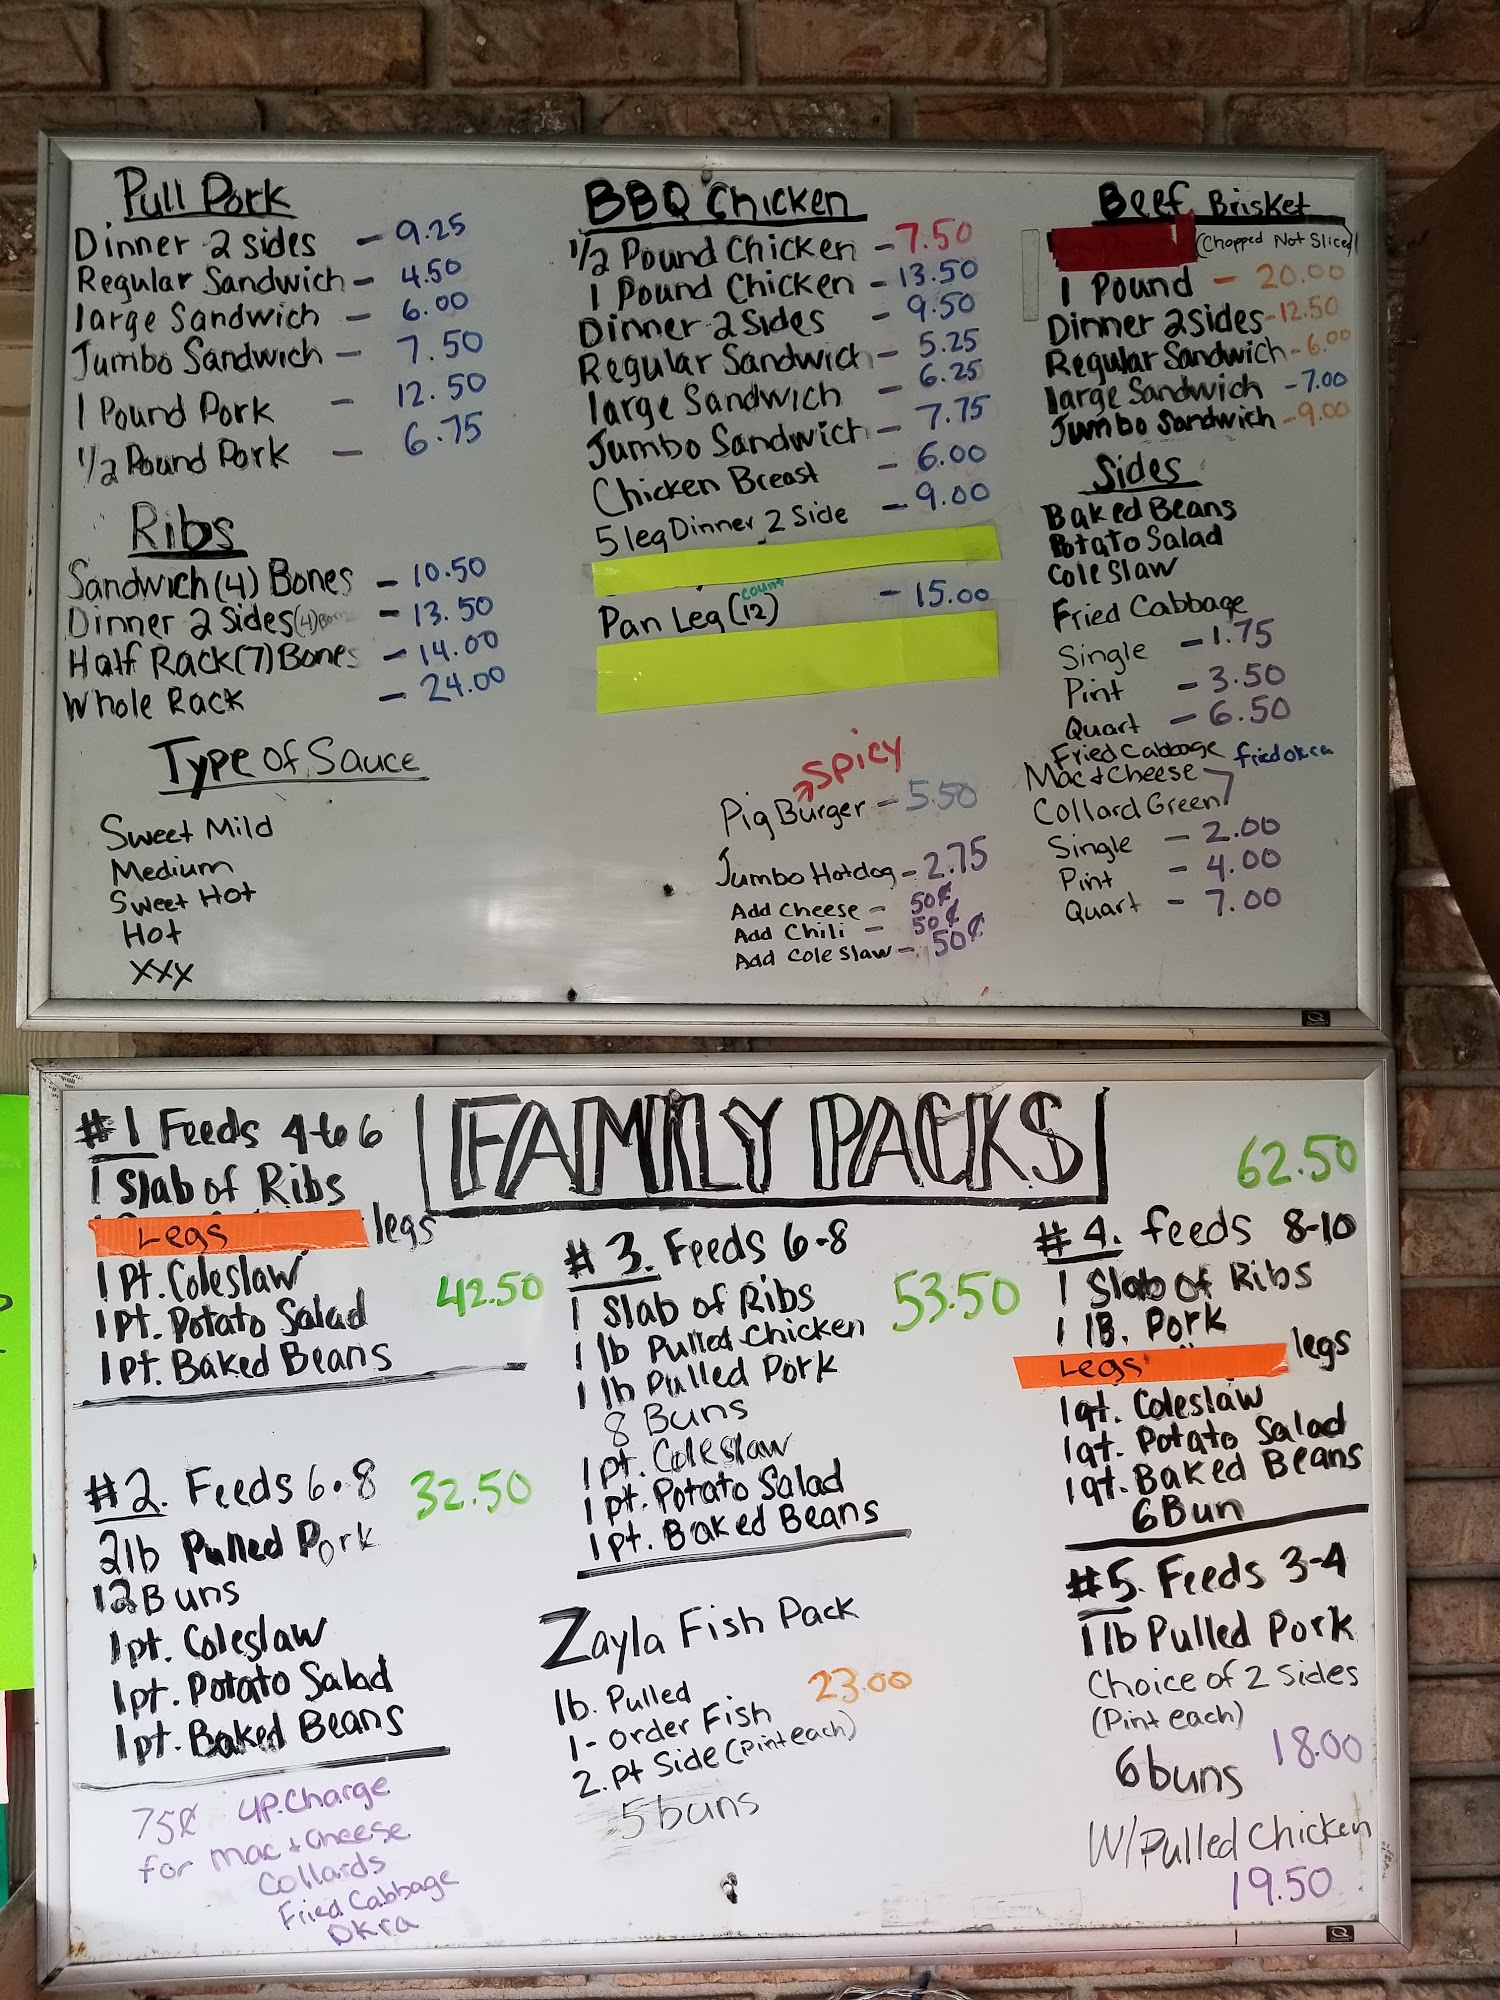 Pull Pork
Dinner 2 sides - 9.25
Regular Sandwich - 4.50
large Sandwich - 6.00
Jumbo Sandwich - 7.50
1 Pound Pork - 12.50
1/2 Pound Pork - 6.75
Ribs
Sandwich (4) Bones - 10.50
Dinner 2 Sides (4) Bones - 13.50
Half Rack (7) Bones - 14.00
Whole Rack - 24.00
Type of Sauce
Sweet Mild
Medium
Sweet Hot
Hot
XXX
BBQ Chicken
1/2 Pound Chicken - 7.50
1 Pound Chicken - 13.50
Dinner 2 Sides - 9.50
Regular Sandwich - 5.25
large Sandwich - 6.25
Jumbo Sandwich - 7.75
Chicken Breast - 6.00
5 leg Dinner 2 Side - 9.00
Pan Leg (12) count - 15.00
Spicy
Pig Burger - 5.50
Jumbo Hotdog - 2.75
Add Cheese - 50¢
Add Chili - 50¢
Add Coleslaw - 50¢
Beef Brisket
(Chopped Not Sliced)
1 Pound - 20.00
Dinner 2 sides - 12.50
Regular Sandwich - 6.00
large Sandwich - 7.00
Jumbo Sandwich - 9.00
Sides
Baked Beans
Potato Salad
Cole Slaw
Fried Cabbage
Single - 1.75
Pint - 3.50
Quart - 6.50
Fried Cabbage fried okra
Mac & Cheese
Collard Green
Single - 2.00
Pint - 4.00
Quart - 7.00
FAMILY PACKS
#1 Feeds 4 to 6
1 Slab of Ribs
Legs legs
1 Pt. Coleslaw
42.50
1 Pt. Potato Salad
1 pt. Baked Beans
#2. Feeds 6-8 32.50
2 lb Pulled Pork
12 Buns
1 pt. Coleslaw
1 pt. Potato Salad
1 pt. Baked Beans
75¢ up.Charge
for mac & cheese
Collards
Fried Cabbage
Okra
#3. Feeds 6-8
1 Slab of Ribs 53.50
1 lb Pulled Chicken
1 lb Pulled Pork
8 Buns
1 pt. Coleslaw
1 pt. Potato Salad
1 pt. Baked Beans
Zayla Fish Pack
1b. Pulled 23.00
1- order Fish
2. pt Side (Pint each)
5 buns
62.50
#4. feeds 8-10
1 Slab of Ribs
1 1B. Pork
Legs legs
1 qt. Coleslaw
1 qt. Potato Salad
1 qt. Baked Beans
6 Bun
#5. Feeds 3-4
1 lb Pulled Pork
Choice of 2 sides
(Pint each)
6 buns 18.00
W/Pulled Chicken
19.50